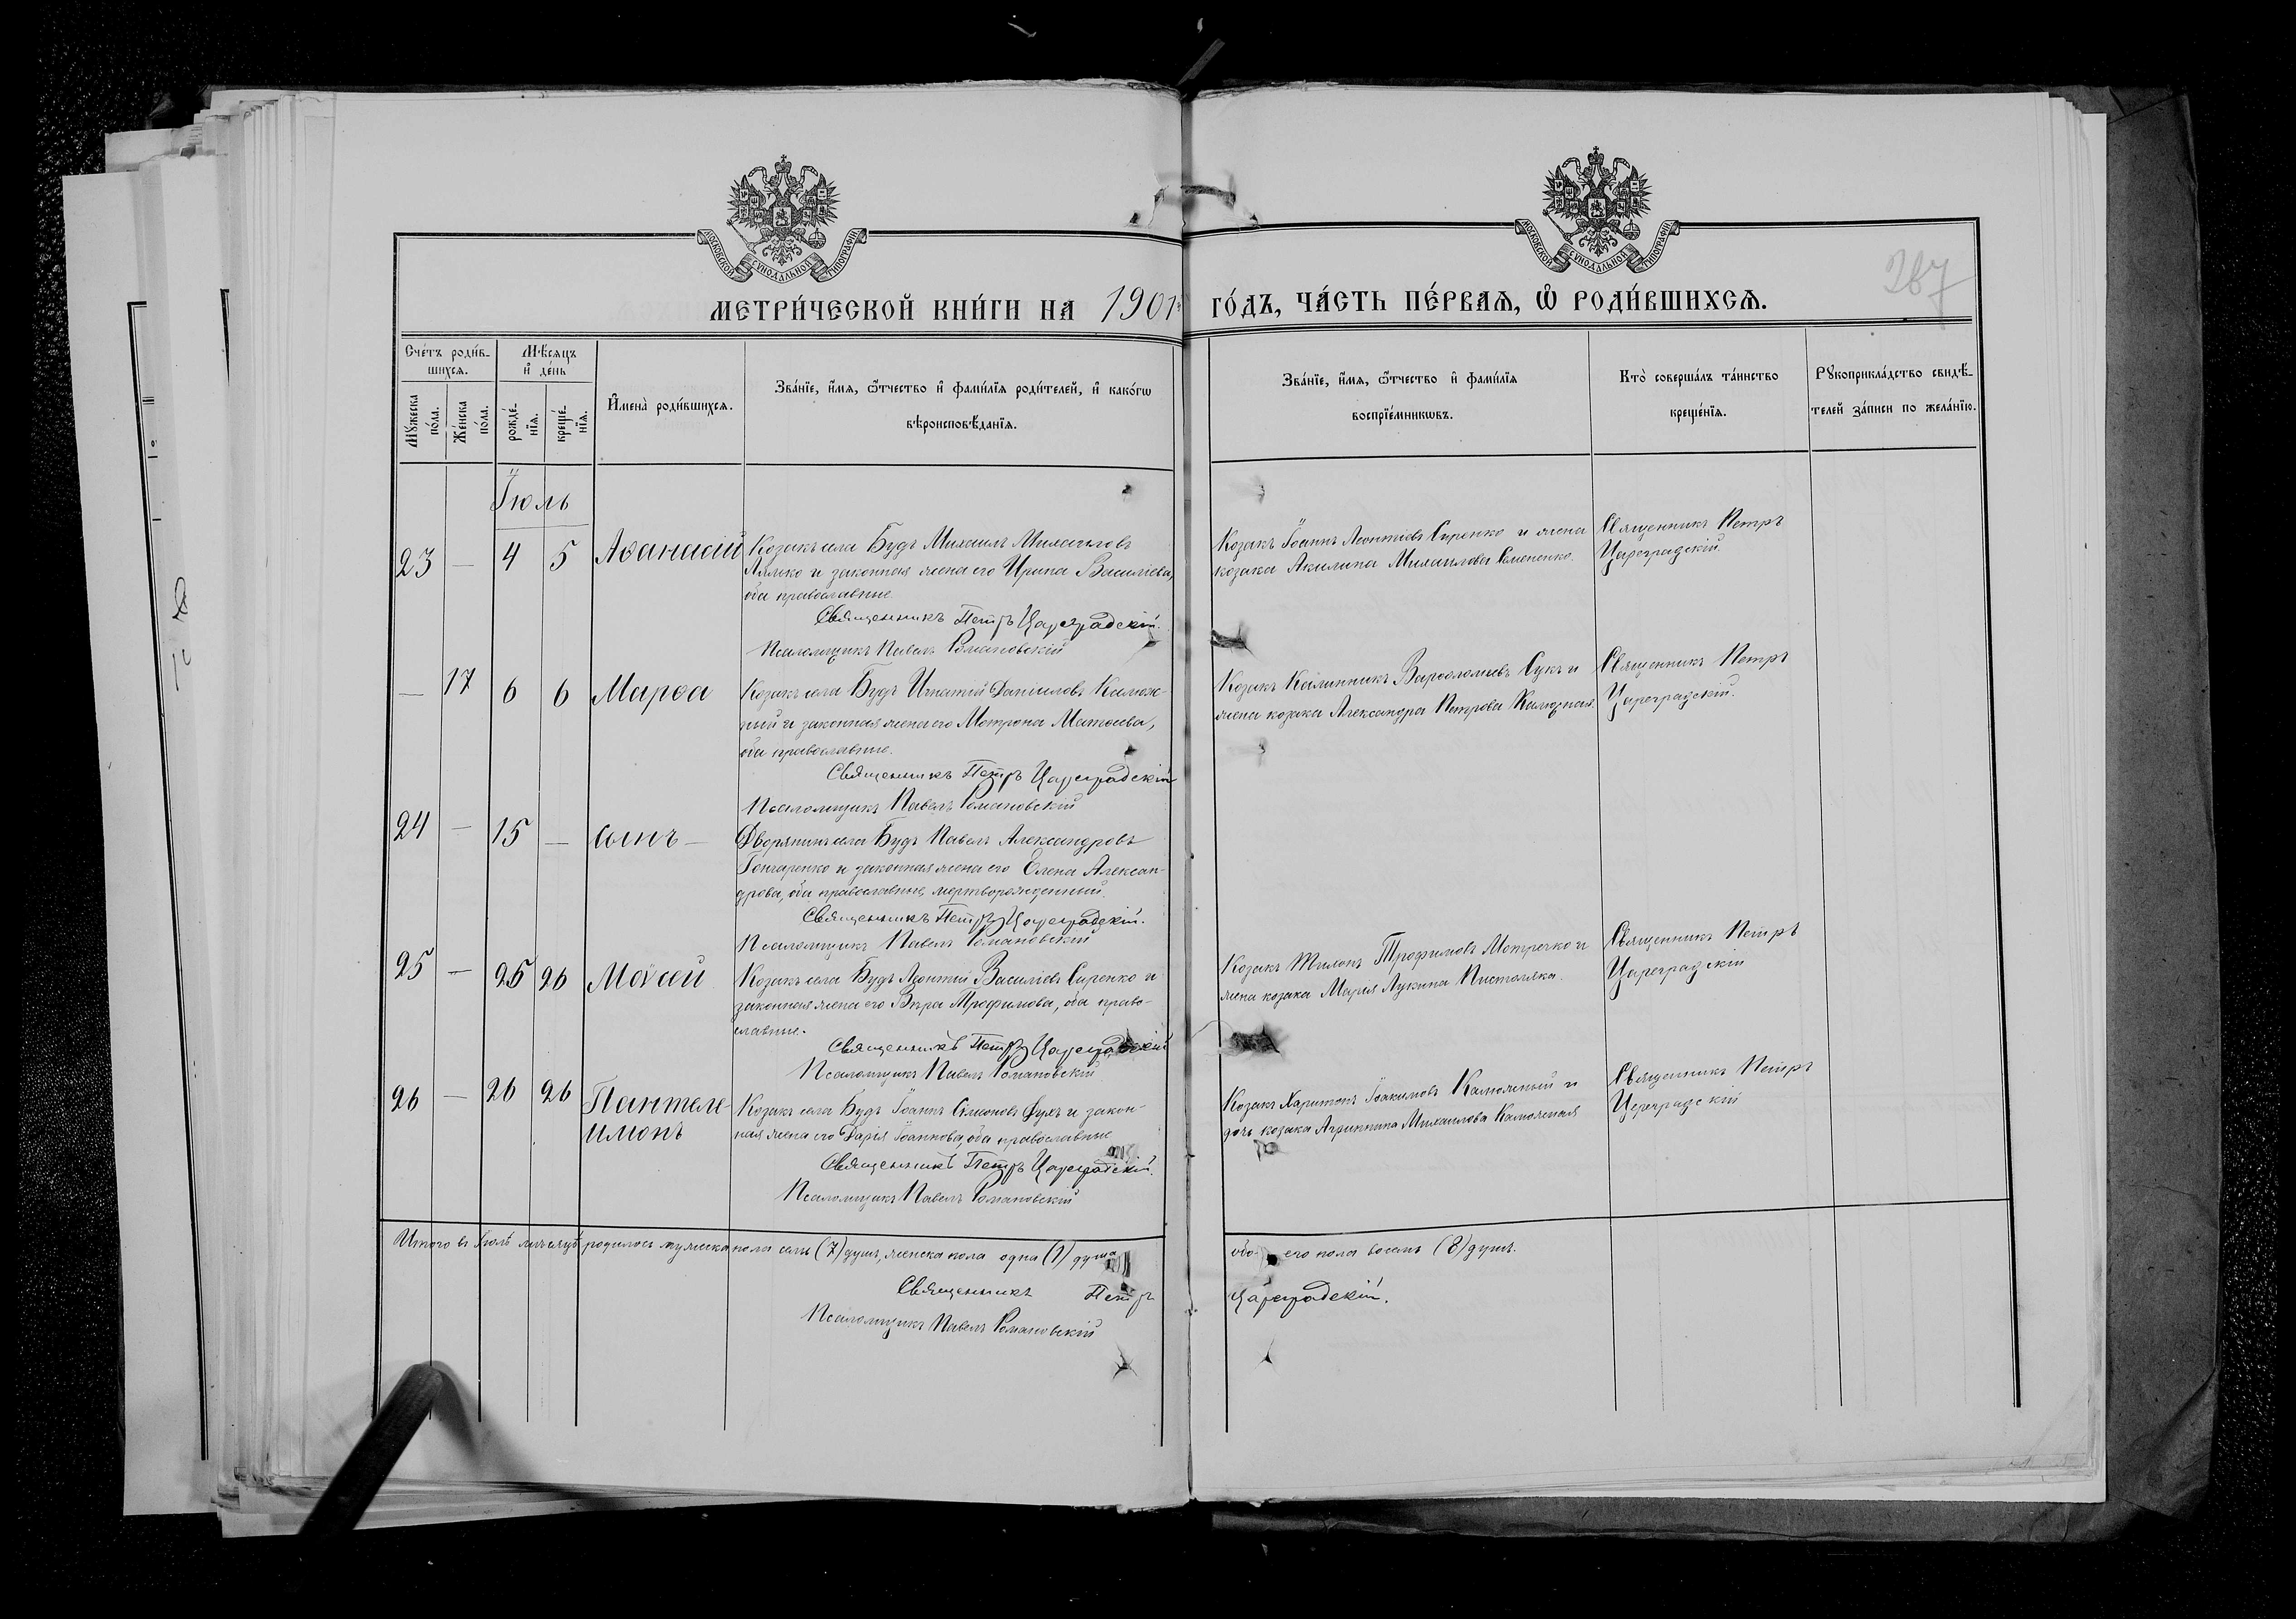 МОСКОВСКОЙ СУНОДАЛЬНОЙ ТИПОГРАФІИ
МОСКОВСКОЙ СУНОДАЛЬНОЙ ТИПОГРАФІИ
287
МЕТРИ́ЧЕСКОЙ КНИ́ГИ НА 1901й ГО́ДЪ, ЧА́СТЬ ПЕ́РВАЯ, Ѡ РОДИ́ВШИХСЯ.
Сче́тъ роди́в-
шихся.
Мѣ́сяцъ
и҆ де́нь
Мꙋ́жеска
по́ла.
Же́нска
по́ла.
рожде́-
нїя.
креще́-
нїя.
И҆мена̀ роди́вшихся.
Зва́нїе, и҆́мя, ѻ҆́тчество и҆ фами́лїя роди́телей, и҆ како́гѡ
вѣроисповѣ́данїя.
Зва́нїе, и҆́мя, ѻ҆́тчество и҆ фами́лїя
воспрїе́мникѡвъ.
Кто̀ соверша́лъ та́инство
креще́нїя.
Рꙋкоприкла́дство свидѣ́-
телей за́писи по жела́нїю.
Іюль
23 — 4 5 Аѳанасій
Козакъ села Будъ Михаилъ Михаиловъ
и законная жена его Ирина Василіева,
оба православные.
Священникъ Петръ Цареградскій.
Псаломщикъ Павелъ Романовскій
Козакъ Іоаннъ Леонтіевъ Сиренко и жена
козака Акилина Михаилова Семененко.
Священникъ Петръ
Цареградскій.
— 17 6 6 Марѳа
Козакъ села Будъ Игнатій Даніиловъ Калюж-
ный и законная жена его Мотрона Матѳеева,
оба православные.
Священникъ Петръ Цареградскій
Псаломщикъ Павелъ Романовскій
Козакъ Каллинникъ Варѳоломіевъ Сукъ и
жена козака Александра Петрова Калюжная.
Священникъ Петръ
Цареградскій.
24 — 15 — сынъ —
Дворянинъ села Будъ Павелъ Александровъ
Гончаренко и законная жена его Елена Алексан-
дрова, оба православные, мертворожденный.
Священникъ Петръ Цареградскій.
Псаломщикъ Павелъ Романовскій
25 — 25 26 Моѵсей
Козакъ села Будъ Леонтій Василіевъ Сиренко и
законная жена его Вѣра Трофимова, оба право-
славные.
Священникъ Петръ Цареградскій
Псаломщикъ Павелъ Романовскій
Козакъ Трофимовъ и
жена козака Марія Лукина
Священникъ Петръ
Цареградскій
26 — 26 26 Пантеле-
имонъ
Козакъ села Будъ Іоаннъ Симоновъ и закон-
ная жена его Дарія Іоаннова, оба православные
Священникъ Петръ Цареградскій.
Псаломщикъ Павелъ Романовскій
Козакъ Харитонъ Іоакимовъ Калюжный и
дочь козака Агриппина Михаилова Калюжная
Священникъ Петръ
Цареградскій
Итого въ Іюлѣ мѣсяцѣ родилось мужеска пола семь (7) душъ, женска пола одна (1) душа обо- его пола восемь (8) душъ.
Священникъ Петръ Цареградскій.
Псаломщикъ Павелъ Романовскій